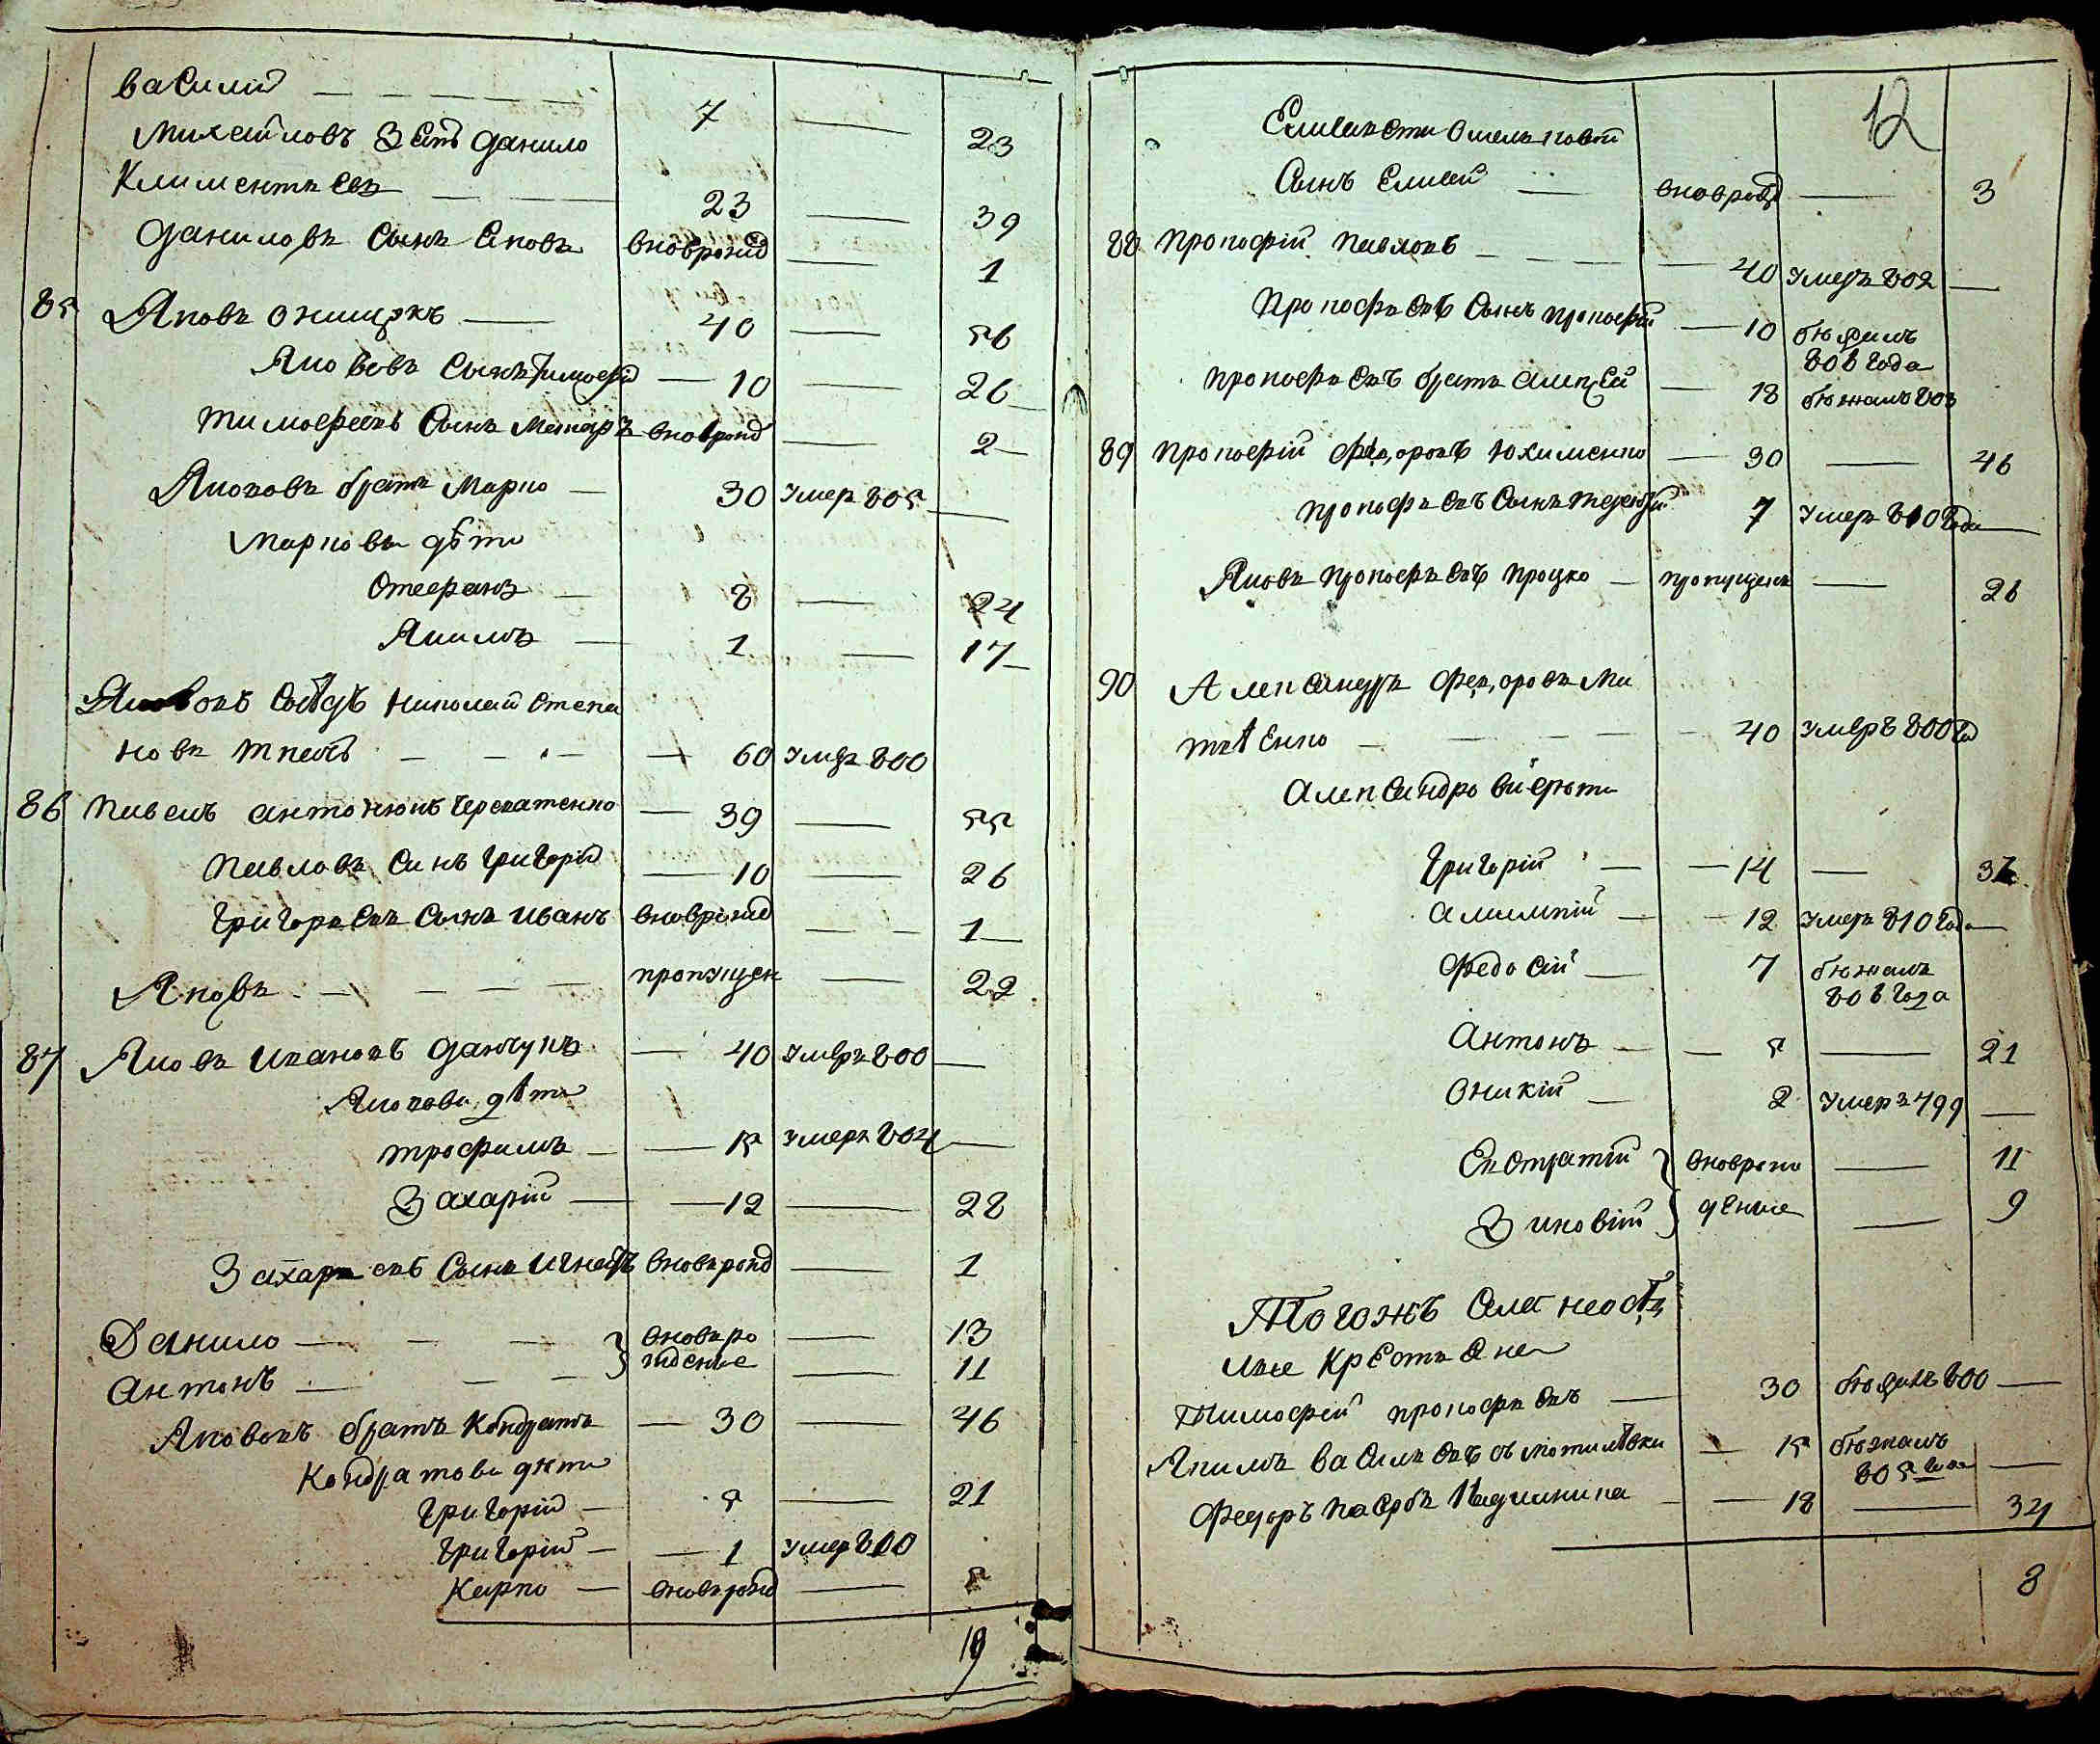 василий — 7 — 23
Михайловъ Зять Данило
Климентьевъ — 23 — 39
Даниловъ Сынъ Яковъ вновврожд — 1
85 Яковъ Онищукъ — 40 — 56
Якововъ Сынъ Тимофей — 10 — 26
Тимофеевъ Сынъ вноврожд — 2
Якововъ братъ Марко — 30 Умеръ 805 —
Марковы дѣти
Стефанъ — 8 — 24
Якимъ — 1 — 17
Яковъ Николай Степа
новъ — 60 Умеръ 800
86 Павелъ Антонюкъ — 39 — 55
Павловъ Синъ Григорій — 10 — 26
Григорьевъ Сынъ Иванъ вноврожд — 1
Яковъ — пропущен — 22
87 Яковъ Ивановъ Данчукъ — 40 Умеръ 800 —
Яковови дѣти
Трофимъ — 15 Умеръ 804 —
Захарій — 12 — 28
Захарьевъ Сынъ Игнатъ вноврожд — 1
Данило — вноворо — 13
Антонъ — жденіе — 11
Яковевъ братъ Кондратъ — 30 — 46
Кондратови дѣти
Григорій — 5 — 21
Григорій — 1 Умер 800
Карпо — вноврожд — 5
19
12
Сынъ Елисей — вноврожд — 3
88 Прокофій Павловъ — 40 Умеръ 802 —
Прокофьевъ Сынъ Прокофій — 10 бѣжалъ
806 года
Прокофьевъ братъ Алексей — 18 бѣжалъ 803
89 Прокофій Федоровъ Юхименко — 30 — 46
Прокофьевъ Сынъ Терентій 7 Умеръ 810 года —
Яковъ Прокофьевъ Процко — пропущенъ — 26
90 Александръ Федоровъ Ми
тченко — 40 Умеръ 800 год
Александрови дѣти
Григорій — 14 — 3
12 Умеръ 810 года —
Федосій — 7 бѣжалъ
806 года
Антонъ — 5 — 21
Оникій — 2 Умеръ 799 —
Евстратій вноврож — 11
Зиновій деніе — 9
Тогожъ Села
Крестьяне
Тимофей Прокофьевъ — 30 бѣжалъ 800 —
Якимъ Васильевъ — 15 бѣжалъ
805 года —
Федоръ — 18 — 34
8